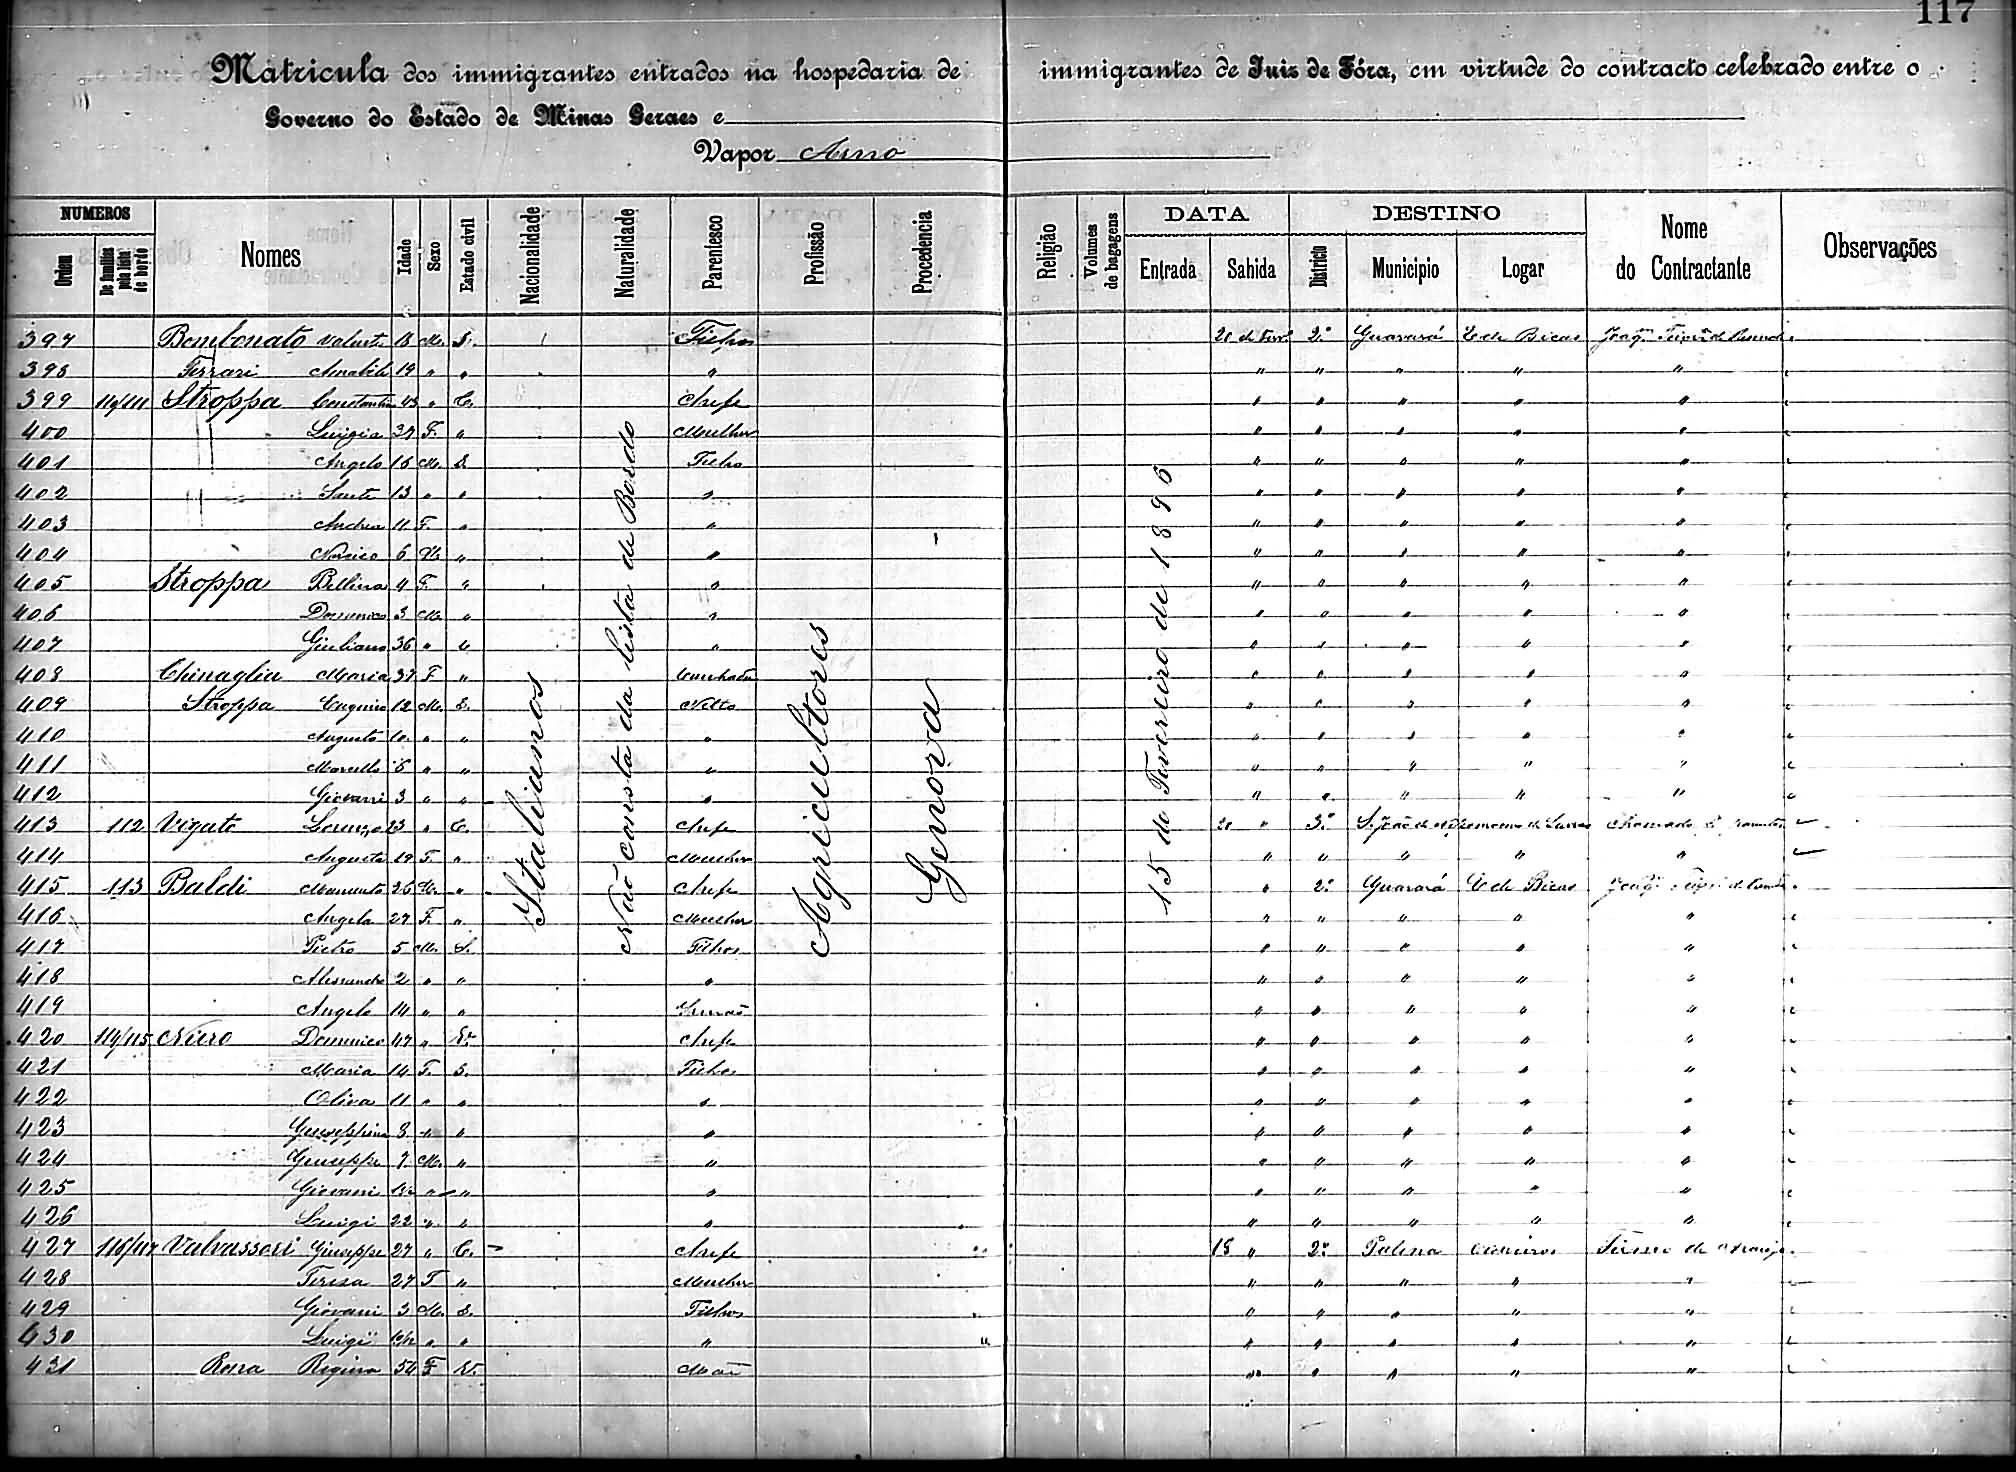 117
Matricula dos immigrantes entrados na hospedaria de immigrantes de Juiz de Fóra, em virtude do contracto celebrado entre o
Governo do Estado de Minas Geraes e
Vapor Arno
NUMEROS
Ordem De familias pela lista de bordo Nomes Idade Sexo Estado civil Nacionalidade Naturalidade Parentesco Profissão Procedencia Religião Volumes de bagagens DATA Entrada Sahida DESTINO Districto Municipio Logar Nome do Contractante Observações
Italianos
Não consta da lista de Bordo
Agricultores
Genova
15 de Fevereiro de 1896
397 Bombonato 18 M. S. Filhos 20 de Fevr. 2º Guarará E de Bicas
398 Ferrari Amabile 19 " " " " " " " "
399 110/111 Stroppa Constantin 43 " C. Chefe " " " " "
400 Luigia 37 F. " Mulher " " " " "
401 Angelo 16 M. S. Filho " " " " "
402 Sante 13 " " " " " " " "
403 Andrea 11 F. " " " " " " "
404 Narciso 6 M. " " " " " " "
405 Stroppa Bellina 4 F. " " " " " " "
406 Domenico 3 M. " " " " " " "
407 Giuliano 36 " C " " " " " "
408 Chinaglia Maria 37 F " Cunhada " " " " "
409 Stroppa Eugenio 12 M. S. Netto " " " " "
410 Augusto 10 " " " " " " " "
411 Marcello 6 " " " " " " " "
412 Giovanni 3 " " " " " " " "
413 112 Vigato Lorenzo 23 " C. Chefe 20 " 3º
414 Augusta 19 F. " Mulher " " " " "
415 113 Baldi 26 M. " Chefe " 2º Guarará E de Bicas
416 Angela 27 F. " Mulher " " " " "
417 Pietro 5 M. S. Filhos " " " " "
418 Alessandro 2 " " " " " " " "
419 Angelo 14 " " Irmão " " " " "
420 114/115 Niero Domenico 47 " V. Chefe " " " " "
421 Maria 14 F. S. Filhos " " " " "
422 Oliva 11 " " " " " " " "
423 Giuseppina 8 " " " " " " " "
424 Giuseppe 7 M. " " " " " " "
425 Giovanni " " " " " " " "
426 Luigi 22 " " " " " " " "
427 116/117 Valvassori Giuseppe 27 " C. Chefe 18 " 2º Palma
428 Teresa 27 F " Mulher " " " " "
429 Giovani 3 M. S. Filhos " " " " "
430 Luigi " " " " " " " "
431 Rosa Regina 54 F V. Mãe " " " " "